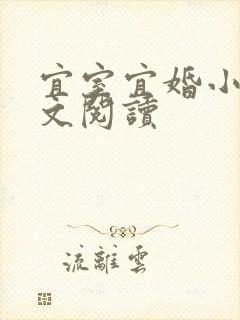 宜室宜婚小
文閱讀
流離雲